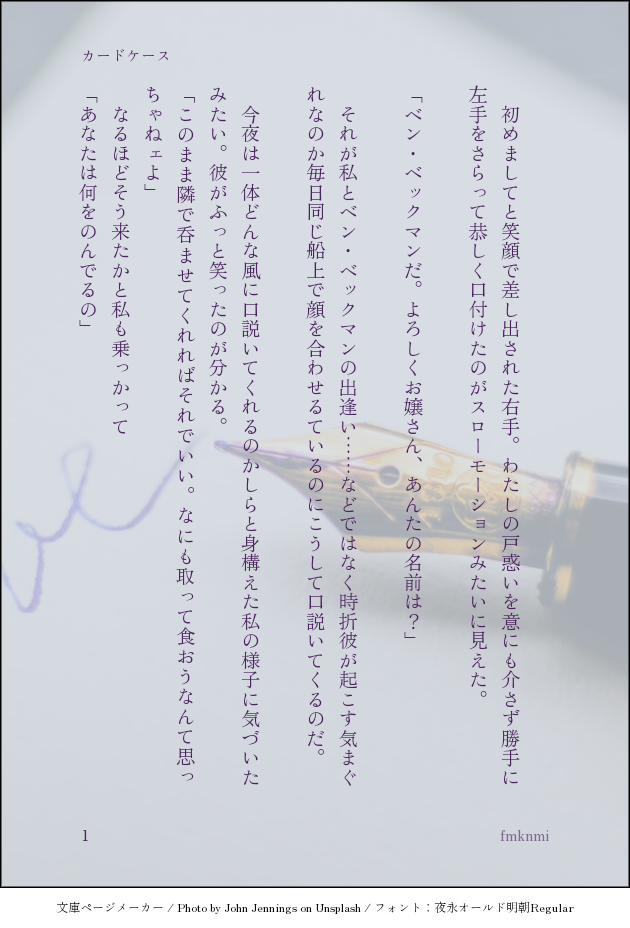 カードケース
　初めましてと笑顔で差し出された右手。わたしの戸惑いを意にも介さず勝手に
左手をさらって恭しく口付けたのがスローモーションみたいに見えた。
「ベン・ベックマンだ。よろしくお嬢さん、あんたの名前は？」
　それが私とベン・ベックマンの出逢い……などではなく時折彼が起こす気まぐ
れなのか毎日同じ船上で顔を合わせるているのにこうして口説いてくるのだ。
　今夜は一体どんな風に口説いてくれるのかしらと身構えた私の様子に気づいた
みたい。彼がふっと笑ったのが分かる。
「このまま隣で呑ませてくれればそれでいい。なにも取って食おうなんて思っ
ちゃねェよ」
　なるほどそう来たかと私も乗っかって
「あなたは何をのんでるの」
1
fmknmi
文庫ページメーカー / Photo by John Jennings on Unsplash / フォント：夜永オールド明朝Regular